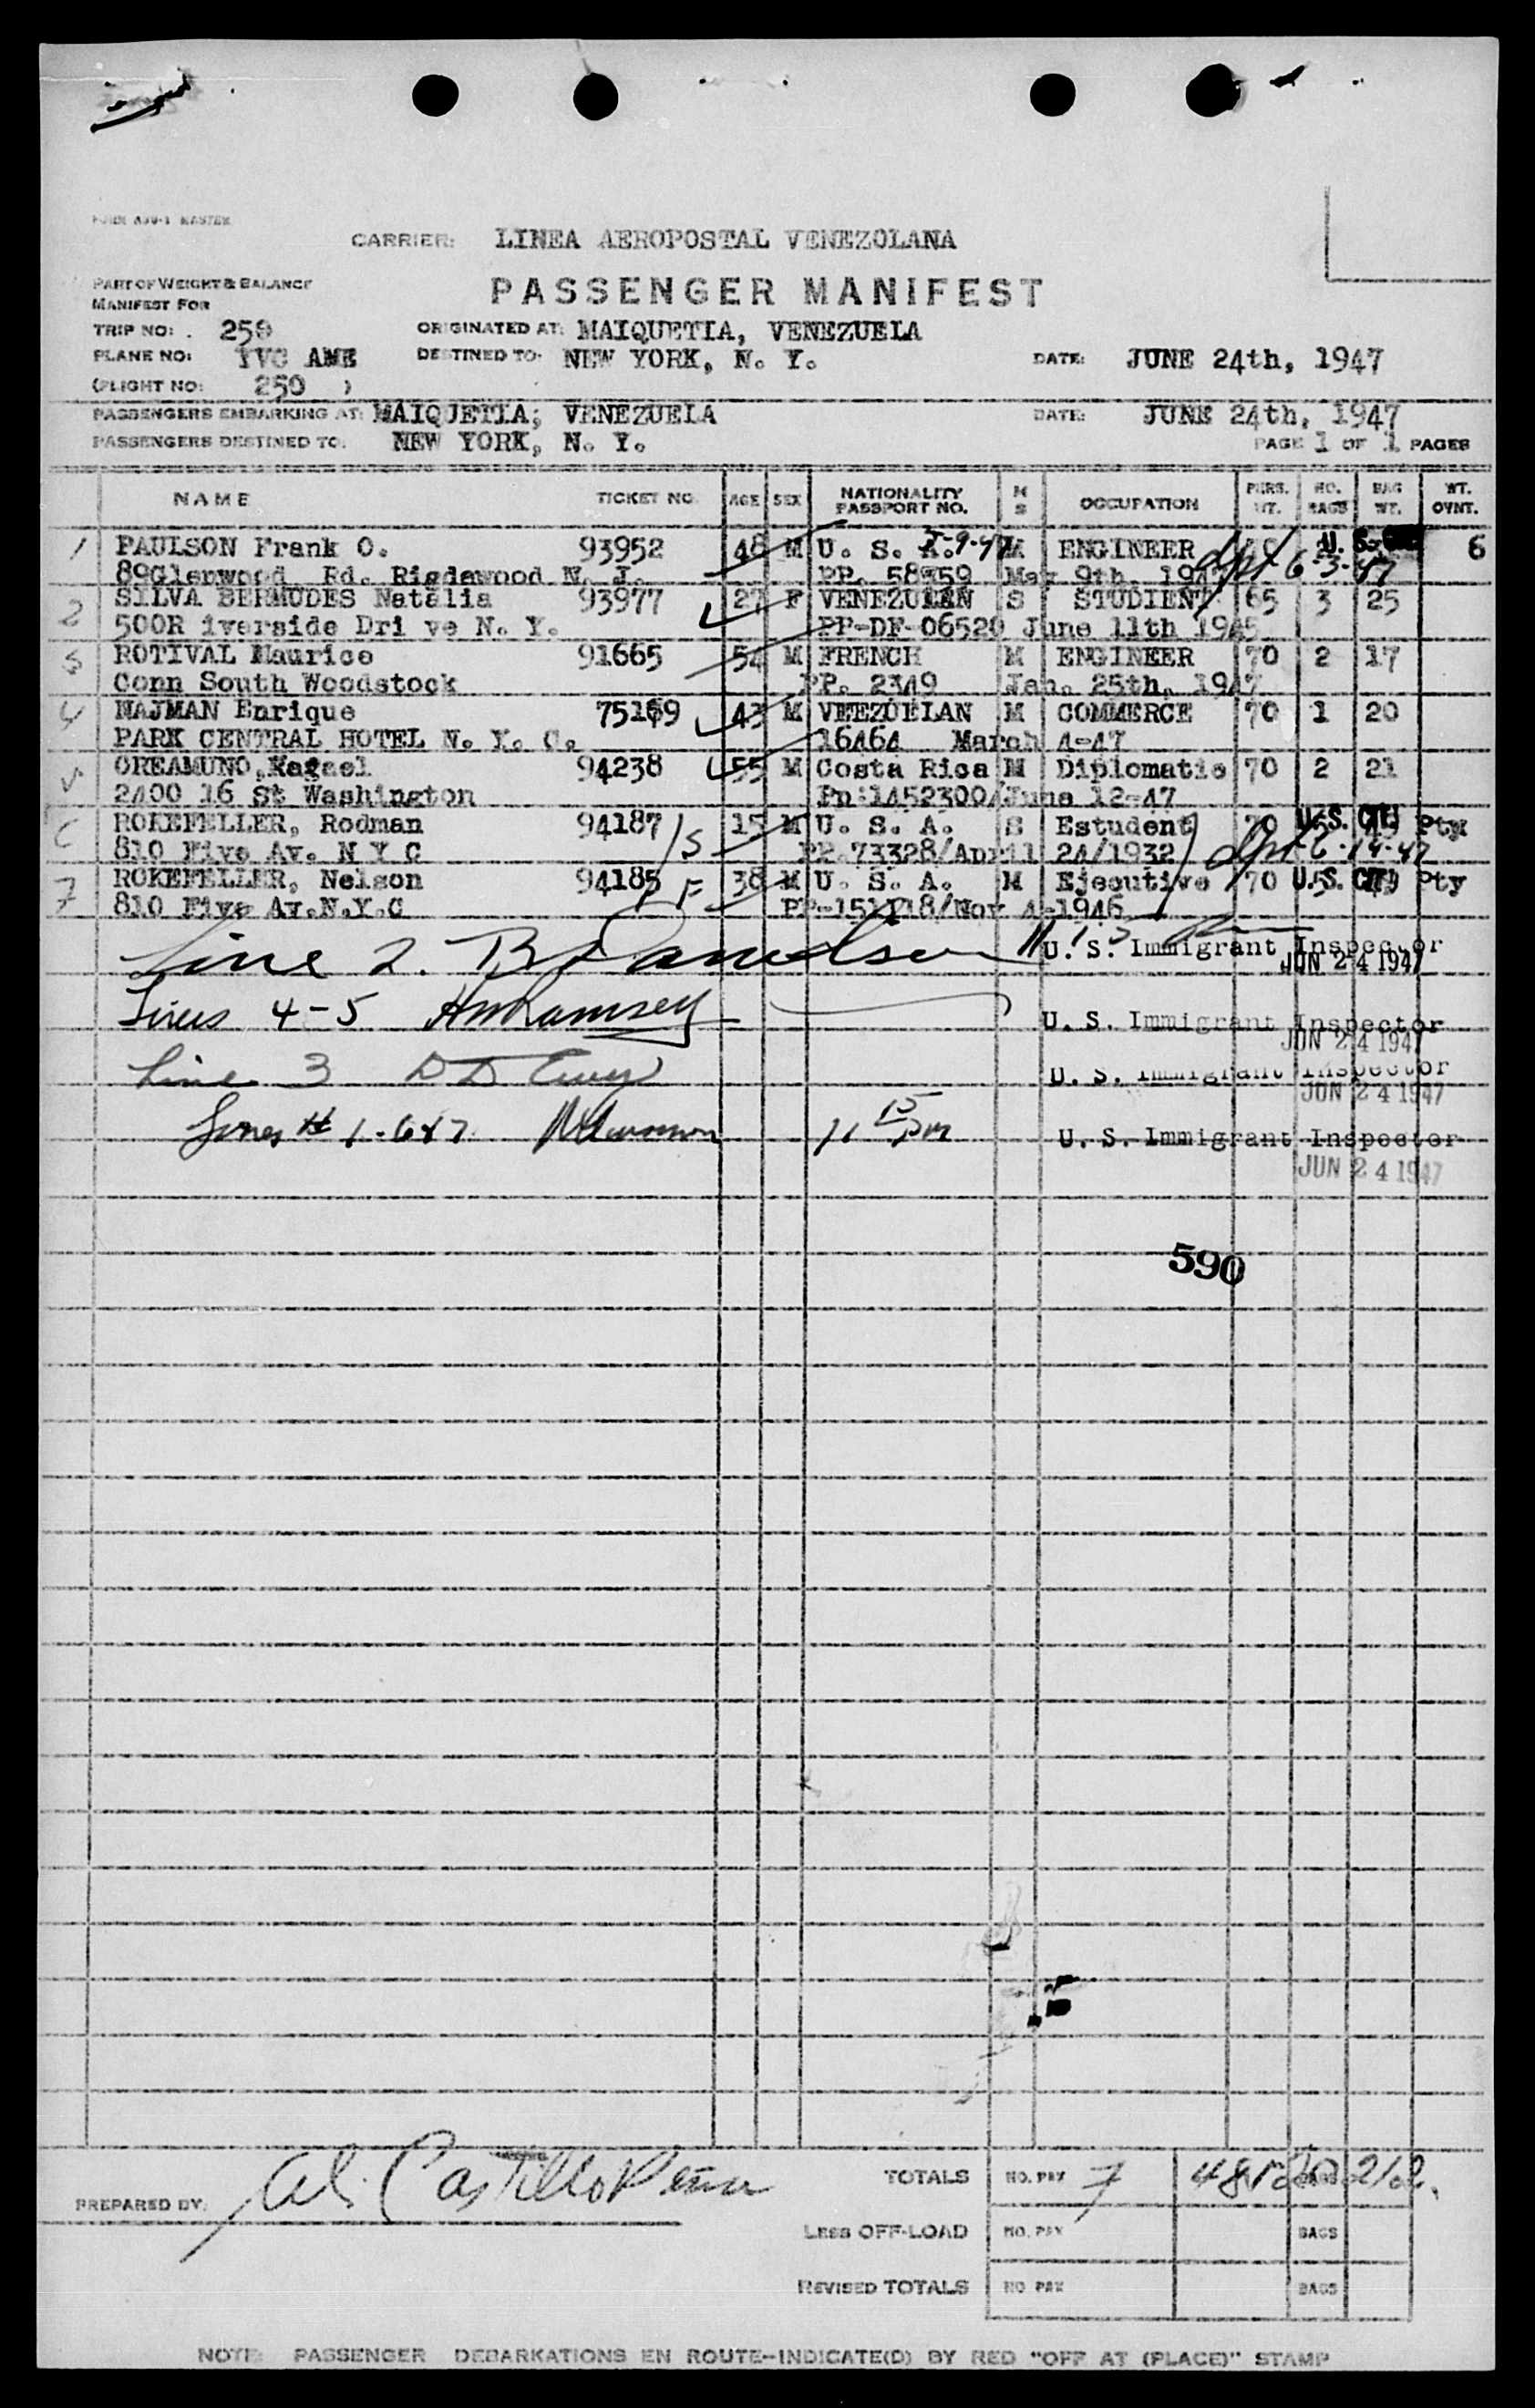 FORM A30-1 MASTER
CARRIER: LINEA AEROPOSTAL VENEZOLANA
PART OF WEIGHT & BALANCE
MANIFEST FOR
PASSENGER MANIFEST
TRIP NO: 250 ORIGINATED AT: MAIQUETIA, VENEZUELA
PLANE NO: YVC AME DESTINED TO: NEW YORK, N. Y. DATE: JUNE 24th, 1947
(FLIGHT NO: 250 )
PASSENGERS EMBARKING AT: MAIQUETIA; VENEZUELA DATE: JUNE 24th, 1947
PASSENGERS DESTINED TO: NEW YORK, N. Y. PAGE 1 OF 1 PAGES
NAME TICKET NO. AGE SEX NATIONALITY PASSPORT NO. M S OCCUPATION PERS. WT. NO. BAGS BAG WT. WT. OVNT.
1 PAULSON Frank O. 93952 48 M U. S. A. 5-9-47 M ENGINEER U. S. 6
89Glenwood Rd. Rigdewood N. J. PP. 58759 May 9th, 1947 dpt 6-3-47
2 SILVA BERMUDES Natalia 93977 27 F VENEZULAN S STUDIENT 65 3 25
500R iverside Dri ve N. Y. PP-DF-06520 June 11th 1945
3 ROTIVAL Maurice 91665 54 M FRENCH M ENGINEER 70 2 17
Conn South Woodstock PP. 2349 Jan. 25th, 1947
4 NAJMAN Enrique 75169 43 M VEEZUELAN M COMMERCE 70 1 20
PARK CENTRAL HOTEL N. Y. C. 16464 March 4-47
5 OREAMUNO, Rafael 94238 55 M Costa Rica M Diplomatic 70 2 21
2400 16 St Washington Pn:1452300/June 12-47
6 ROKEFELLER, Rodman 94187 /S 15 M U. S. A. S Estudent 70 U.S. CIT. Pty
810 Five Av. N Y C PP.73328/April 24/1932 dpt 6-14-47
7 ROKEFELLER, Nelson 94185 F 38 M U. S. A. M Ejecutive 70 U.S. CIT. Pty
810 Five Av.N.Y.C PP-151118/Nov 4-1946
Line 2. U. S. Immigrant Inspector
JUN 24 1947
Lines 4-5 HM Ramsey U. S. Immigrant Inspector
JUN 24 1947
Line 3 U. S. Immigrant Inspector
JUN 24 1947
Lines # 1-6&7 11 15 pm U. S. Immigrant Inspector
JUN 24 1947
590
PREPARED BY: Castillo Peña
TOTALS NO. PAX 7 212
LESS OFF-LOAD NO. PAX BAGS
REVISED TOTALS NO PAX BAGS
NOTE: PASSENGER DEBARKATIONS EN ROUTE-INDICATE(D) BY RED "OFF AT (PLACE)" STAMP